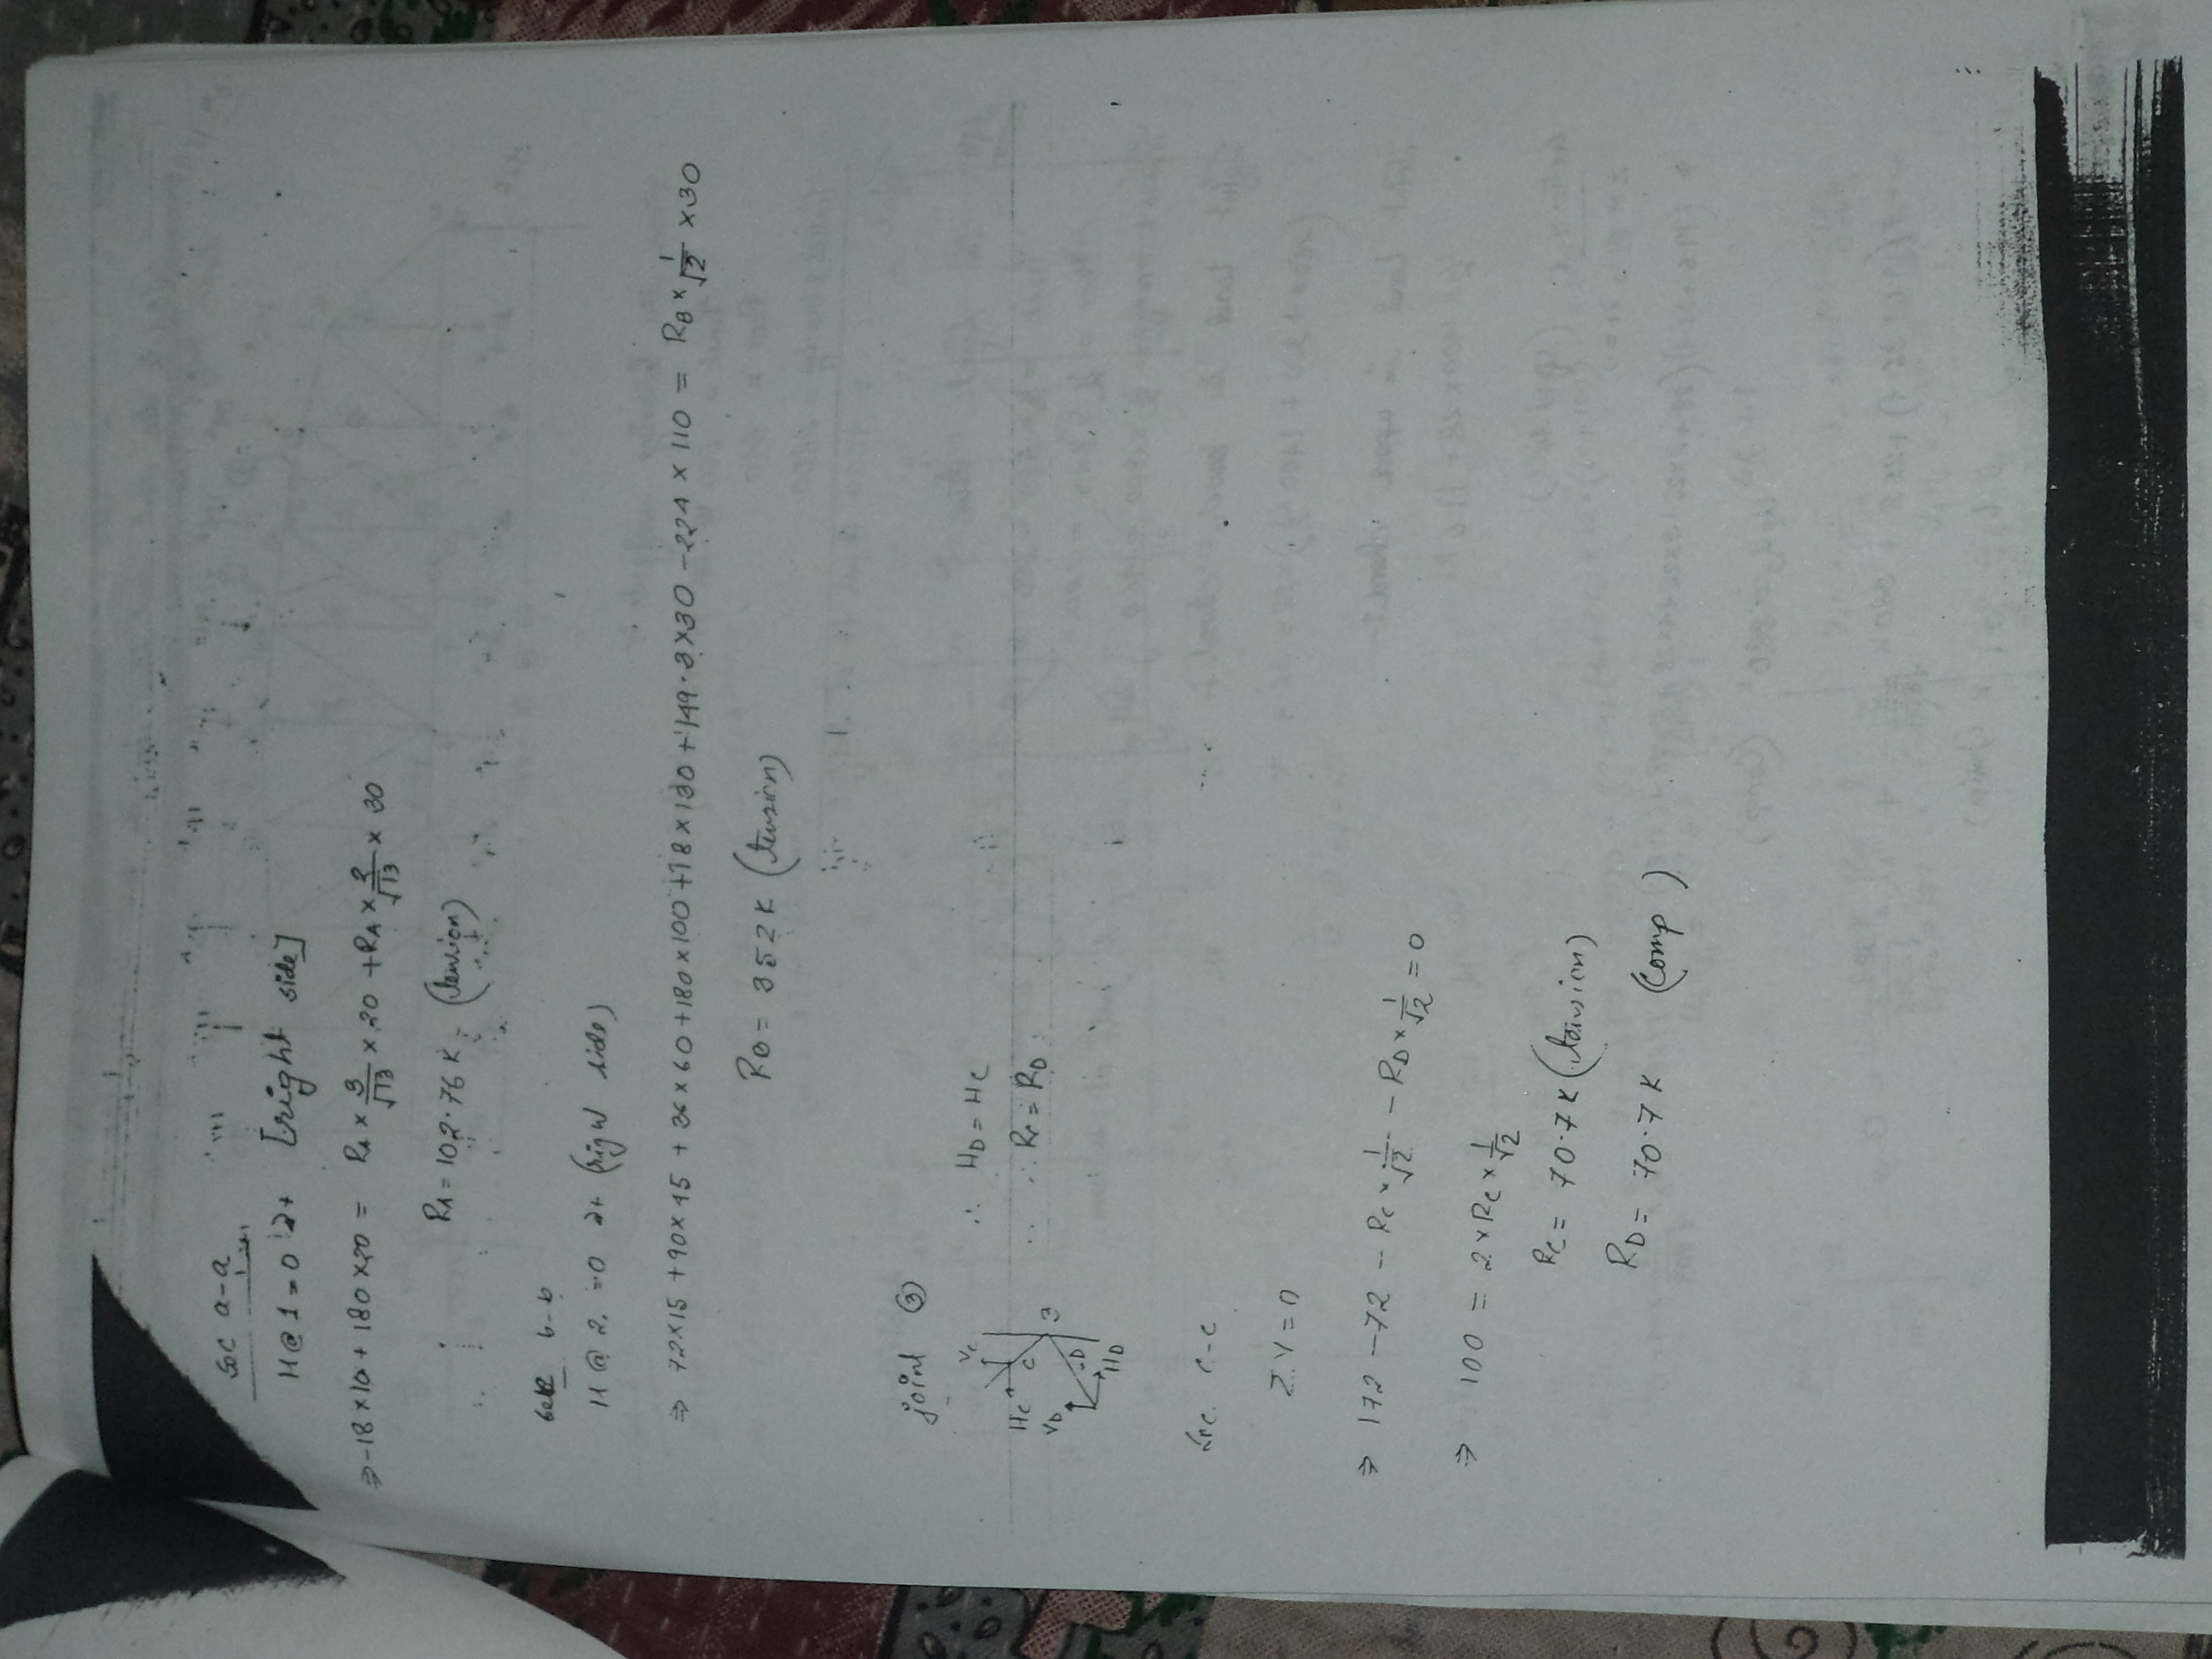 Sec a-a
M@1=0 at [right side]
⇒ -18×10+180×20 = RA×3/√13×20+RA×2/√13×30
RA=102.76K (tension)
sec b-b
M@2.=0 at (right side)
⇒ 72×15+90×45+36×60+180×100+18×130+149.3×30-224×110 = RB×1/√2×30
RB=352K (tension)
joint ③
Vc
Hc
C
3
VD
D
HD
∴ HD=HC
∴ Rc=RD
Sec. C-C
ΣV=0
⇒ 172-72-Rc×1/√2-RD×1/√2=0
⇒ 100=2×Rc×1/√2
Rc=70.7K (tension)
RD=70.7K (comp)